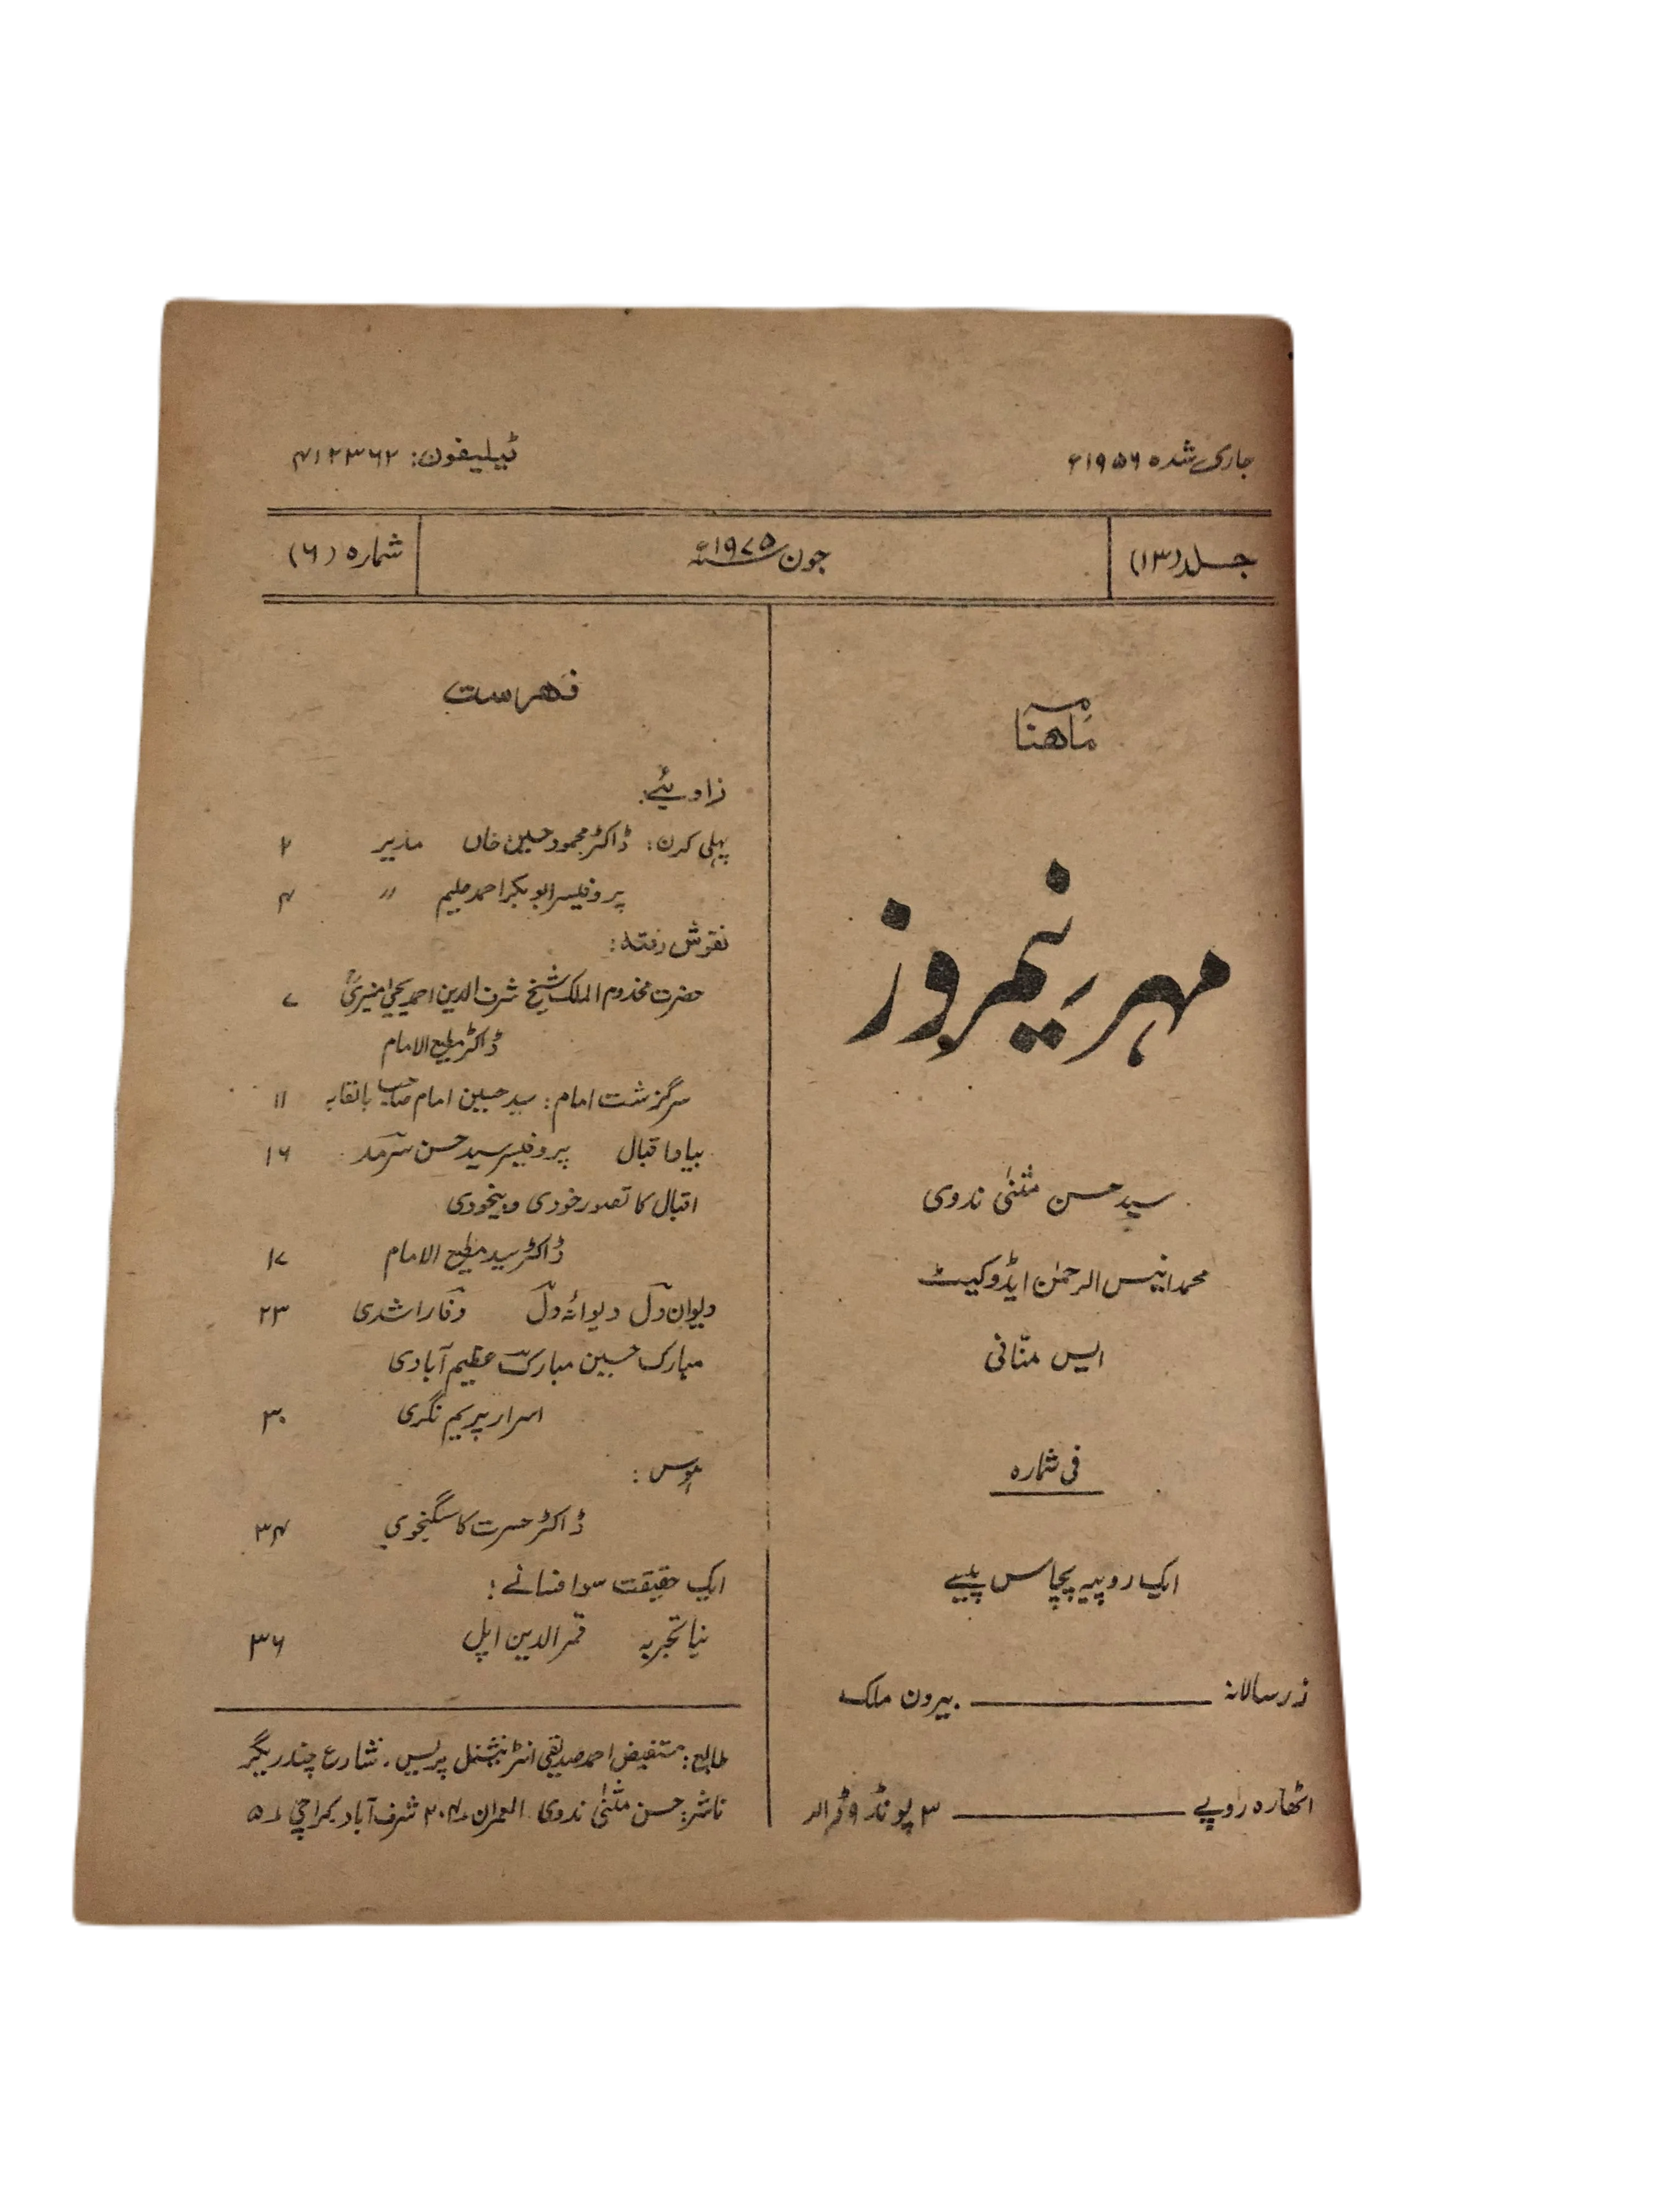 جاری شدہ ۱۹۵۶ء
ٹیلیفون: ۴۱۲۳۶۲
جلد (۱۳)
جون ۱۹۷۵ء
شمارہ (۶)
ماہنامہ
مہر نیمروز
سید حسن مثنیٰ ندوی
محمد انیس الرحمٰن ایڈوکیٹ
ایس منّانی
فی شمارہ
ایک روپیہ پچاس پیسے
زر سالانہ ــــــ بیرون ملک
اٹھارہ روپے ــــــ ۳ پونڈ ۹ ڈالر
فہرست
زاویئے:
پہلی کرن: ڈاکٹر محمود حسین خاں مدیر ۲
پروفیسر ابوبکر احمد حلیم " ۴
نقوش رفتہ:
حضرت مخدوم الملک شیخ شرف الدین احمد یحیٰی منیریؒ ۷
ڈاکٹر مطیع الامام
سرگزشت امام: سید حسین امام صاحب بالقابہ ۱۱
بیاد اقبال پروفیسر سید حسن سرمد ۱۶
اقبال کا تصور خودی و بیخودی
ڈاکٹر سید مطیع الامام ۱۷
دیوان دل دیوانۂ دل وفا راشدی ۲۳
مبارک حسین مبارک عظیم آبادی
اسرار پریم نگری ۳۰
ڈاکٹر حسرت کاسگنجوی ۳۴
ایک حقیقت سو افسانے:
نیا تجربہ قمر الدین اپل ۳۶
طابع: مستفیض احمد صدیقی انٹرنیشنل پریس، شارع چندریگر
ناشر: حسن مثنیٰ ندوی۔ العمران ۲۰۴ شرف آباد کراچی ۵